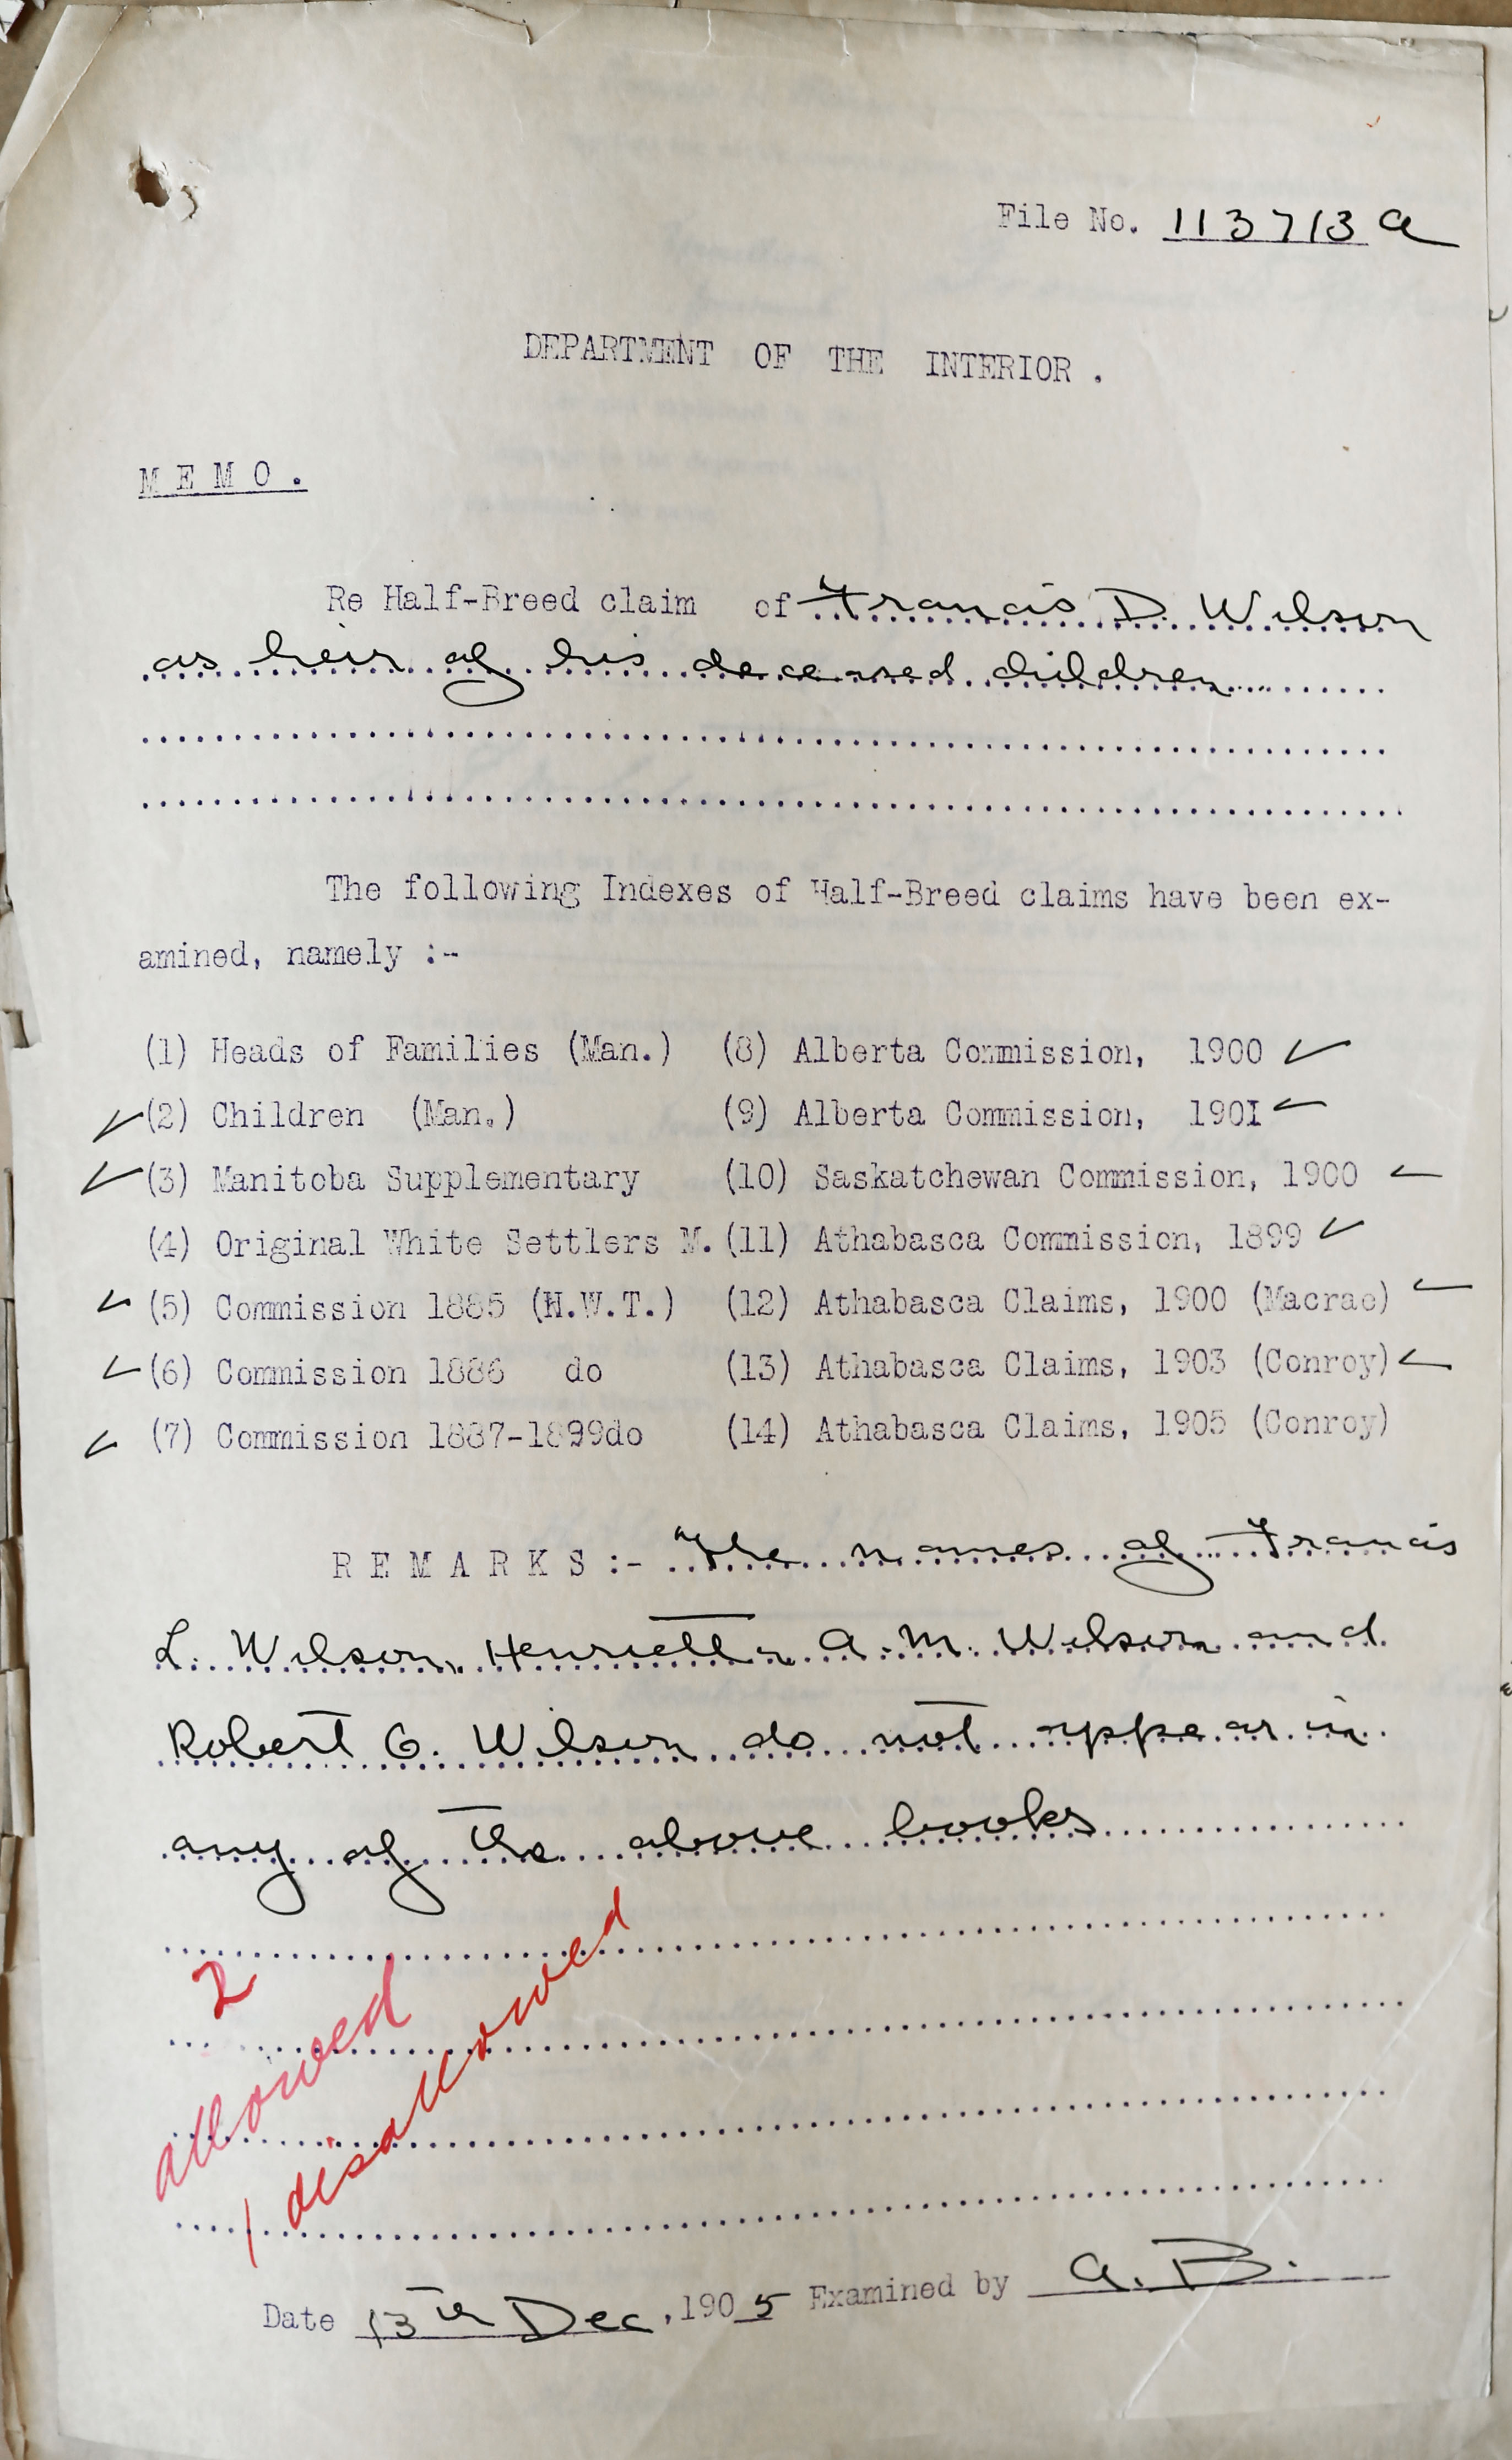 File No. 113713 a
DEPARTMENT OF THE INTERIOR .
M E M O .
Re Half-Breed claim of Francis D. Wilson
as heir of his deceased children
The following Indexes of Half-Breed claims have been ex-
amined, namely :-
(1) Heads of Families (Man.) (8) Alberta Commission, 1900 ✓
✓ (2) Children (Man.) (9) Alberta Commission, 1901 ✓
✓ (3) Manitoba Supplementary (10) Saskatchewan Commission, 1900 ✓
(4) Original White Settlers M. (11) Athabasca Commission, 1899 ✓
✓ (5) Commission 1885 (N.W.T.) (12) Athabasca Claims, 1900 (Macrae) ✓
✓ (6) Commission 1886 do (13) Athabasca Claims, 1903 (Conroy) ✓
✓ (7) Commission 1887-1899 do (14) Athabasca Claims, 1905 (Conroy)
R E M A R K S :- The names of Francis
L. Wilson, Henrietta A. M. Wilson and
Robert G. Wilson do not appear in
any of the above books
2 allowed
1 disallowed
Date 13th Dec, 1905 Examined by A. B.